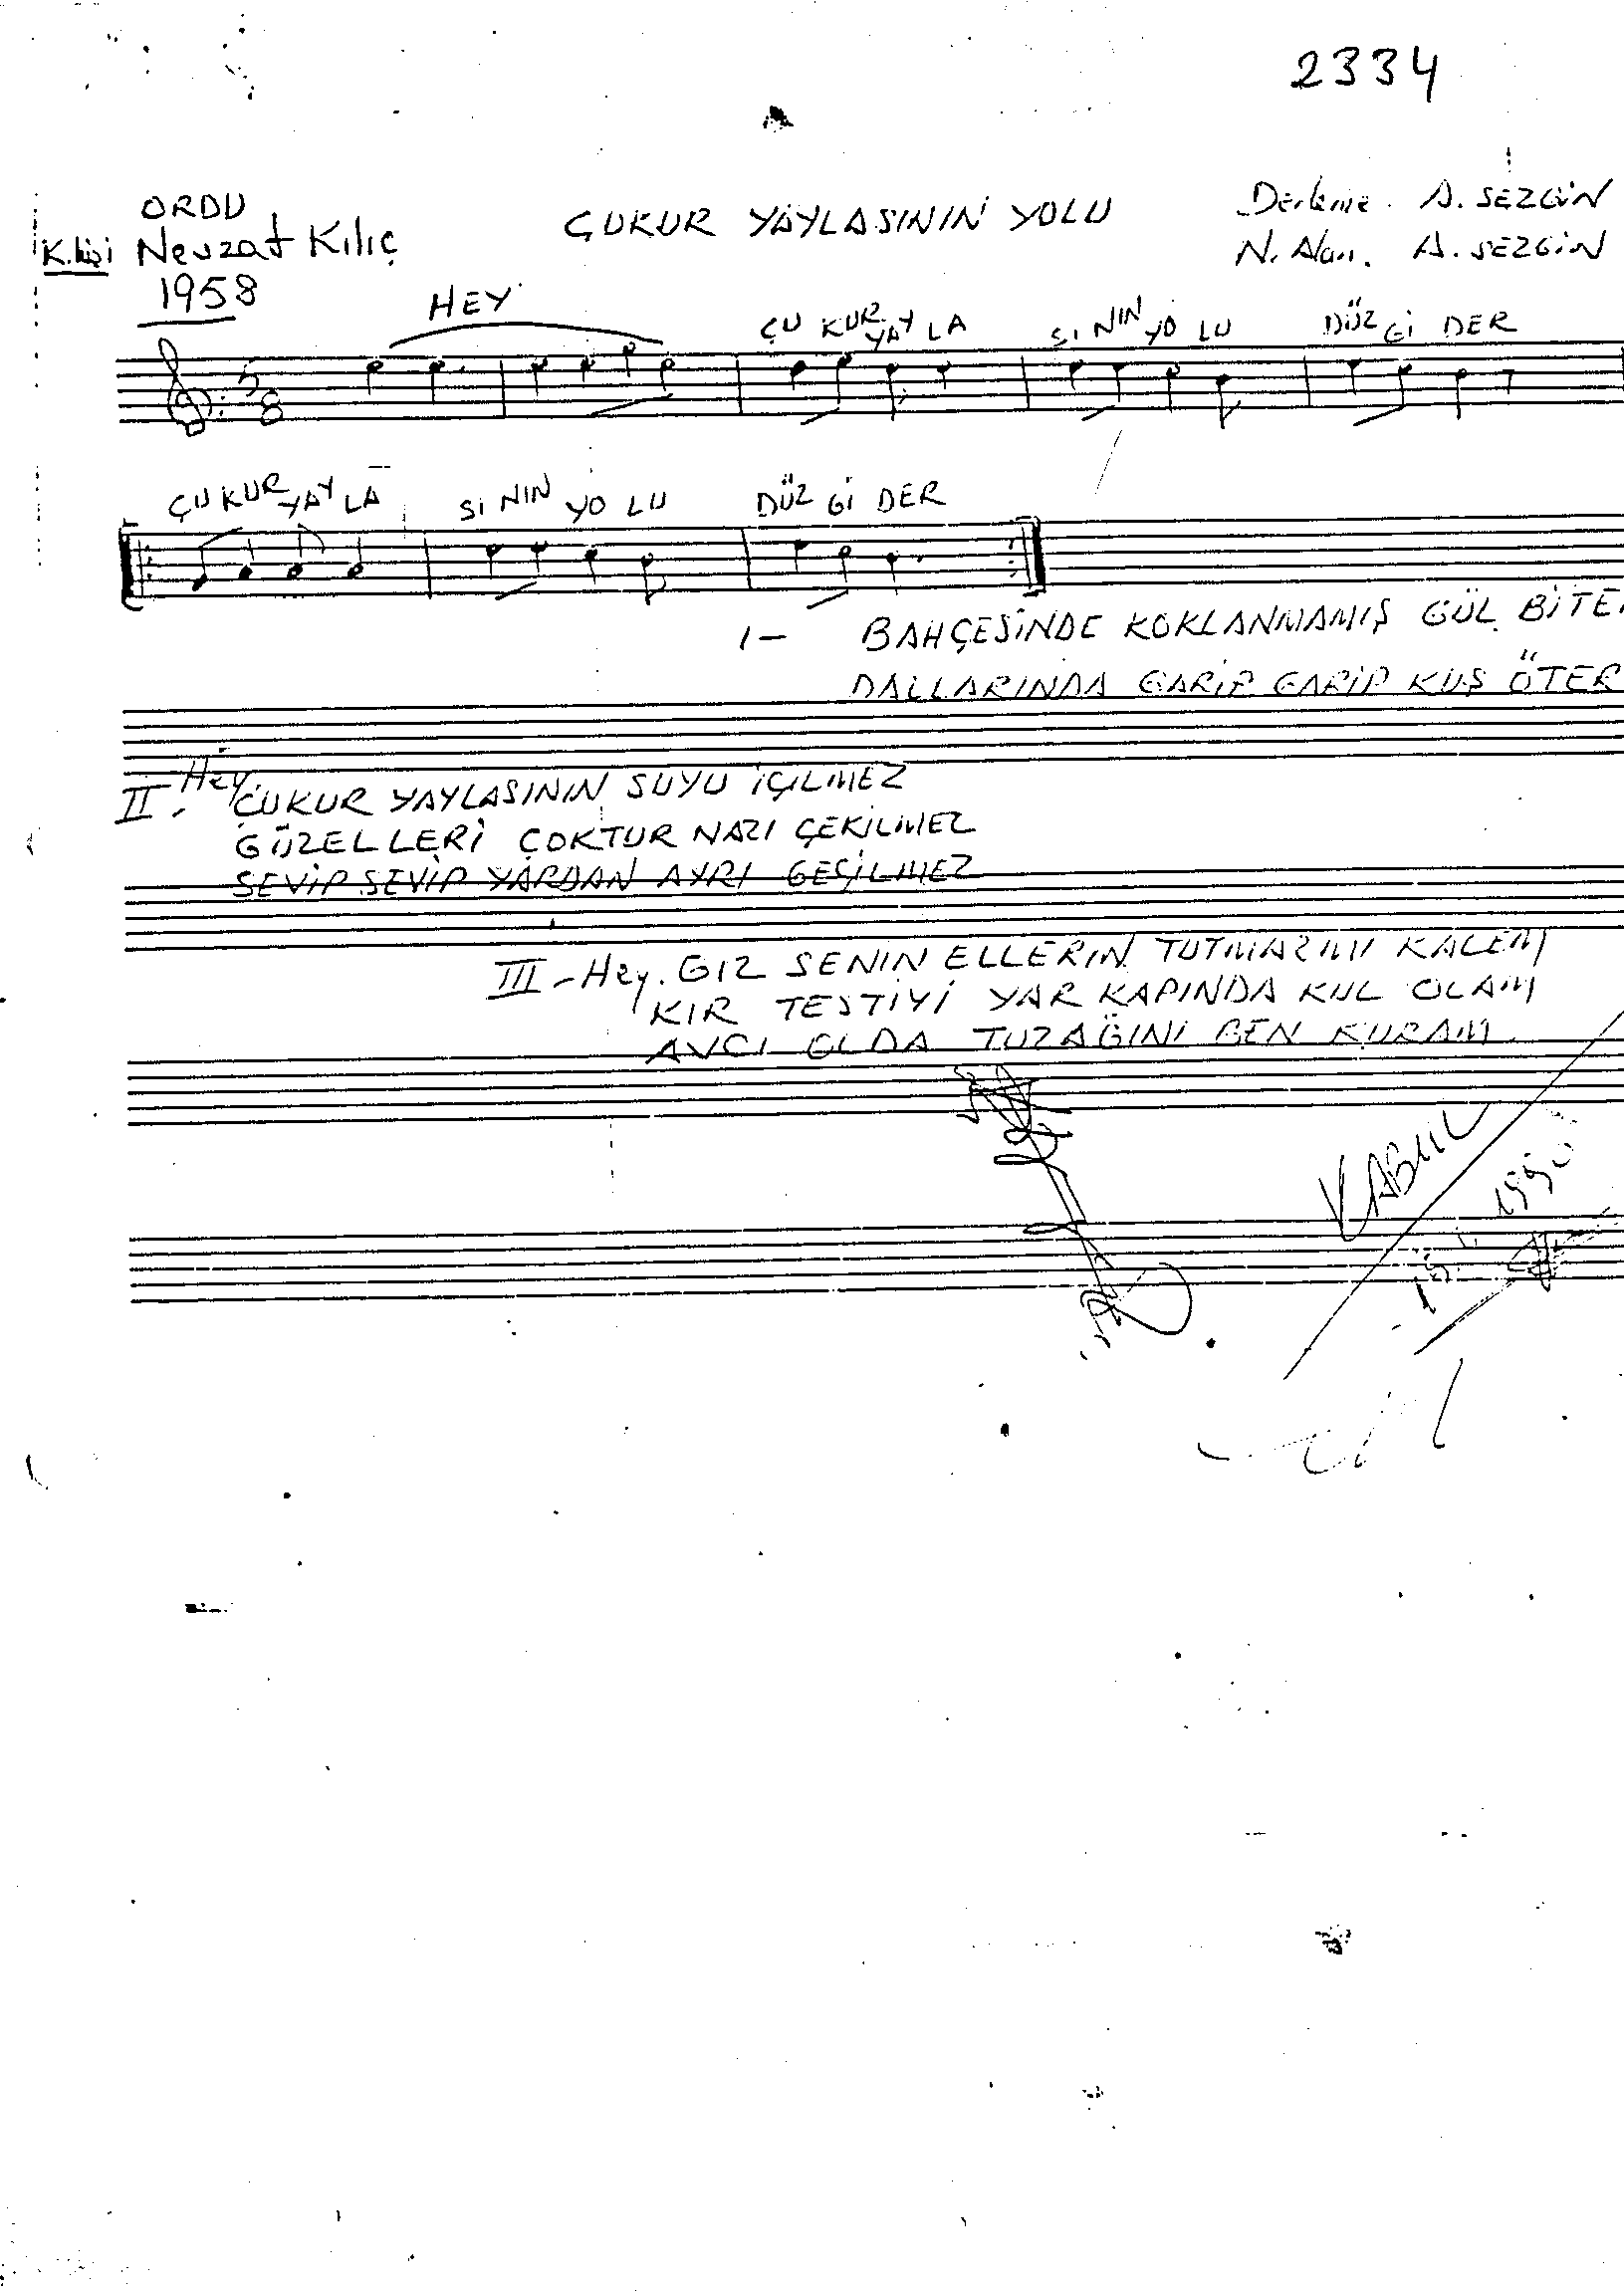 2334
ORDU
K.kişi Nevzat Kılıç
1958
ÇUKUR YAYLASININ YOLU
Derleme. A. SEZGİN
N. Alan. A. SEZGİN
HEY ÇU KUR YAY LA SI NIN YO LU DÜZ Gİ DER
5
8
ÇU KUR YAY LA SI NIN YO LU DÜZ Gİ DER
1- BAHÇESİNDE KOKLANMAMIŞ GÜL BİTER
DALLARINDA GARİP GARİP KUŞ ÖTER
II- Hey. ÇUKUR YAYLASININ SUYU İÇİLMEZ
GÜZELLERİ ÇOKTUR NAZI ÇEKİLMEZ
SEVİP SEVİP YARDAN AYRI GEÇİLMEZ
III- Hey. GIZ SENIN ELLERIN TUTMAZMI KALEM
KIR TESTİYİ YAR KAPINDA KUL OLAM
AVCI OLDA TUZAĞINI BEN KURAM
KABUL
1990